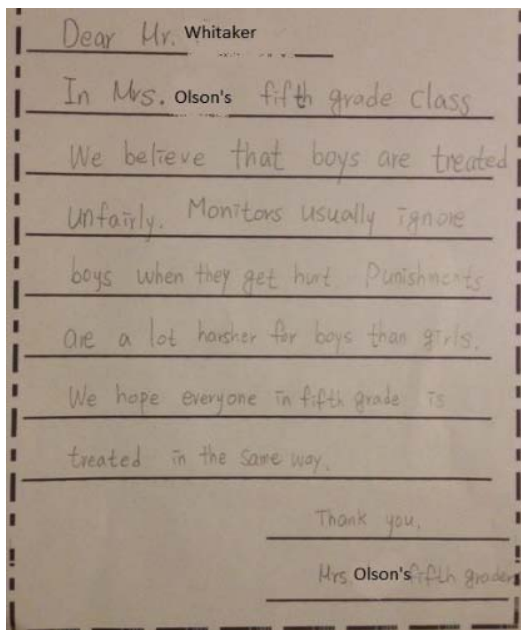 Dear Mr. Whitaker
In Mrs. Olson's fifth grade class
We believe that boys are treated
unfairly. Monitors usually ignore
boys when they get hurt Punishments
are a lot harsher for boys than girls.
We hope everyone in fifth grade is
treated in the same way.
Thank you,
Mrs. Olson's fifth grader